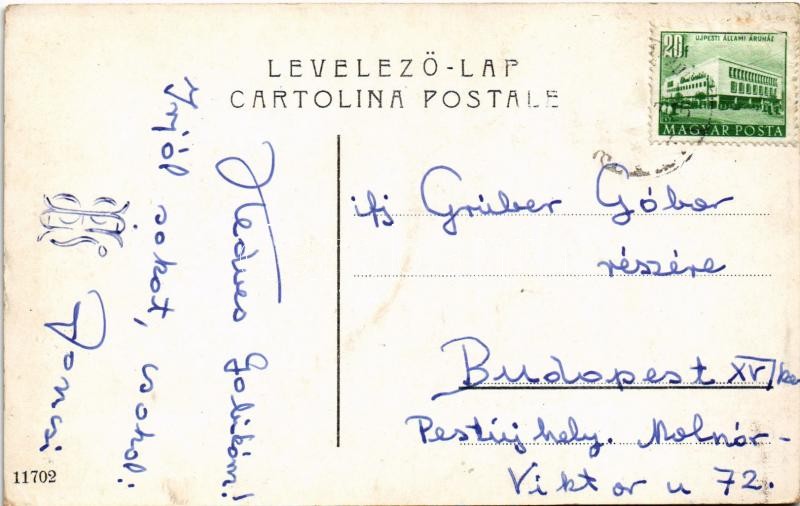 LEVELEZŐ-LAP
CARTOLINA POSTALE
20f
UJPESTI ÁLLAMI ÁRUHÁZ
MAGYAR POSTA
Kedves Gabikám!
Írjál sokat, sokat:
ifj Gruber Gábor
részére
Budapest XV/ker
Pestújhely. Molnár-
Viktor u 72.
11702